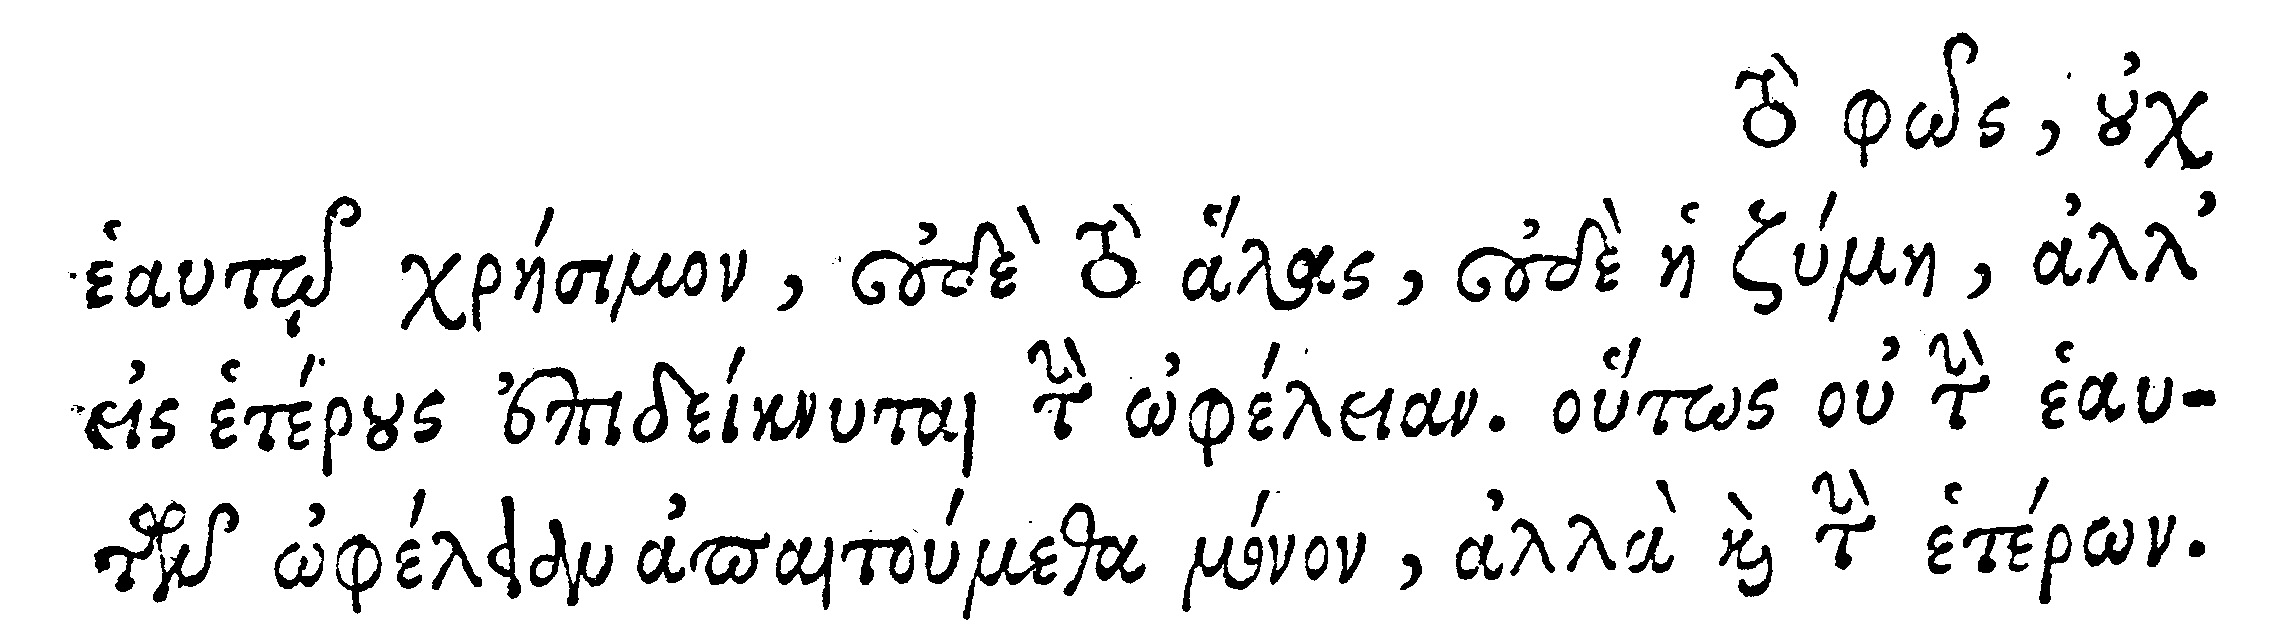 τὸ φῶς, οὐχ
ἑαυτῷ χρήσιμον, οὐδὲ τὸ ἅλας, οὐδὲ ἡ ζύμη, ἀλλ’
εἰς ἑτέρους ἐπιδείκνυται τὴν ὠφέλειαν. οὕτως οὐ τὴν ἑαυ-
τῶν ὠφέλειαν ἀπαιτούμεθα μόνον, ἀλλὰ καὶ τὴν ἑτέρων.